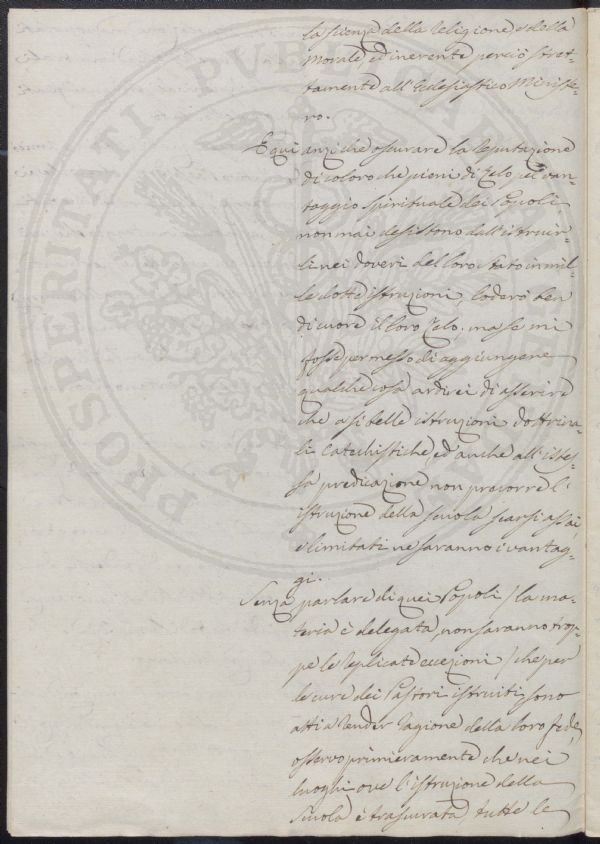 la scienza della Religione, e della
Morale, ed inerente perciò stret-
tamente all'Ecclesiastico Ministe-
ro.
E qui anzi che oscurare la Reputazione
di coloro che pieni di Zelo, pel van-
taggio Spirituale dei Popoli,
non mai desistono dall'istruir-
li nei doveri del loro stato in mil-
le dotte istruzioni, loderò ben
di cuore il loro Zelo; ma se mi
fosse permesso di aggiungere
qualche cosa ardirei di asserire
che a sì belle istruzioni dottrina-
li Catechistiche, ed anche all'istes-
sa predicazione non precorre l'
istruzione della scuola scarsi assai,
e limitati ne saranno i vantag-
gi.
Senza parlare di quei Popoli / la ma-
teria è delegata, non saranno trop-
pe le replicate eccezioni / che per
le cure dei Pastori istruiti sono
atti a render ragione della loro fede,
osservo primieramente che nei
luoghi ove l'istruzione della
Scuola è trascurata, tutte le
PROSPERITATI PUBLICAE